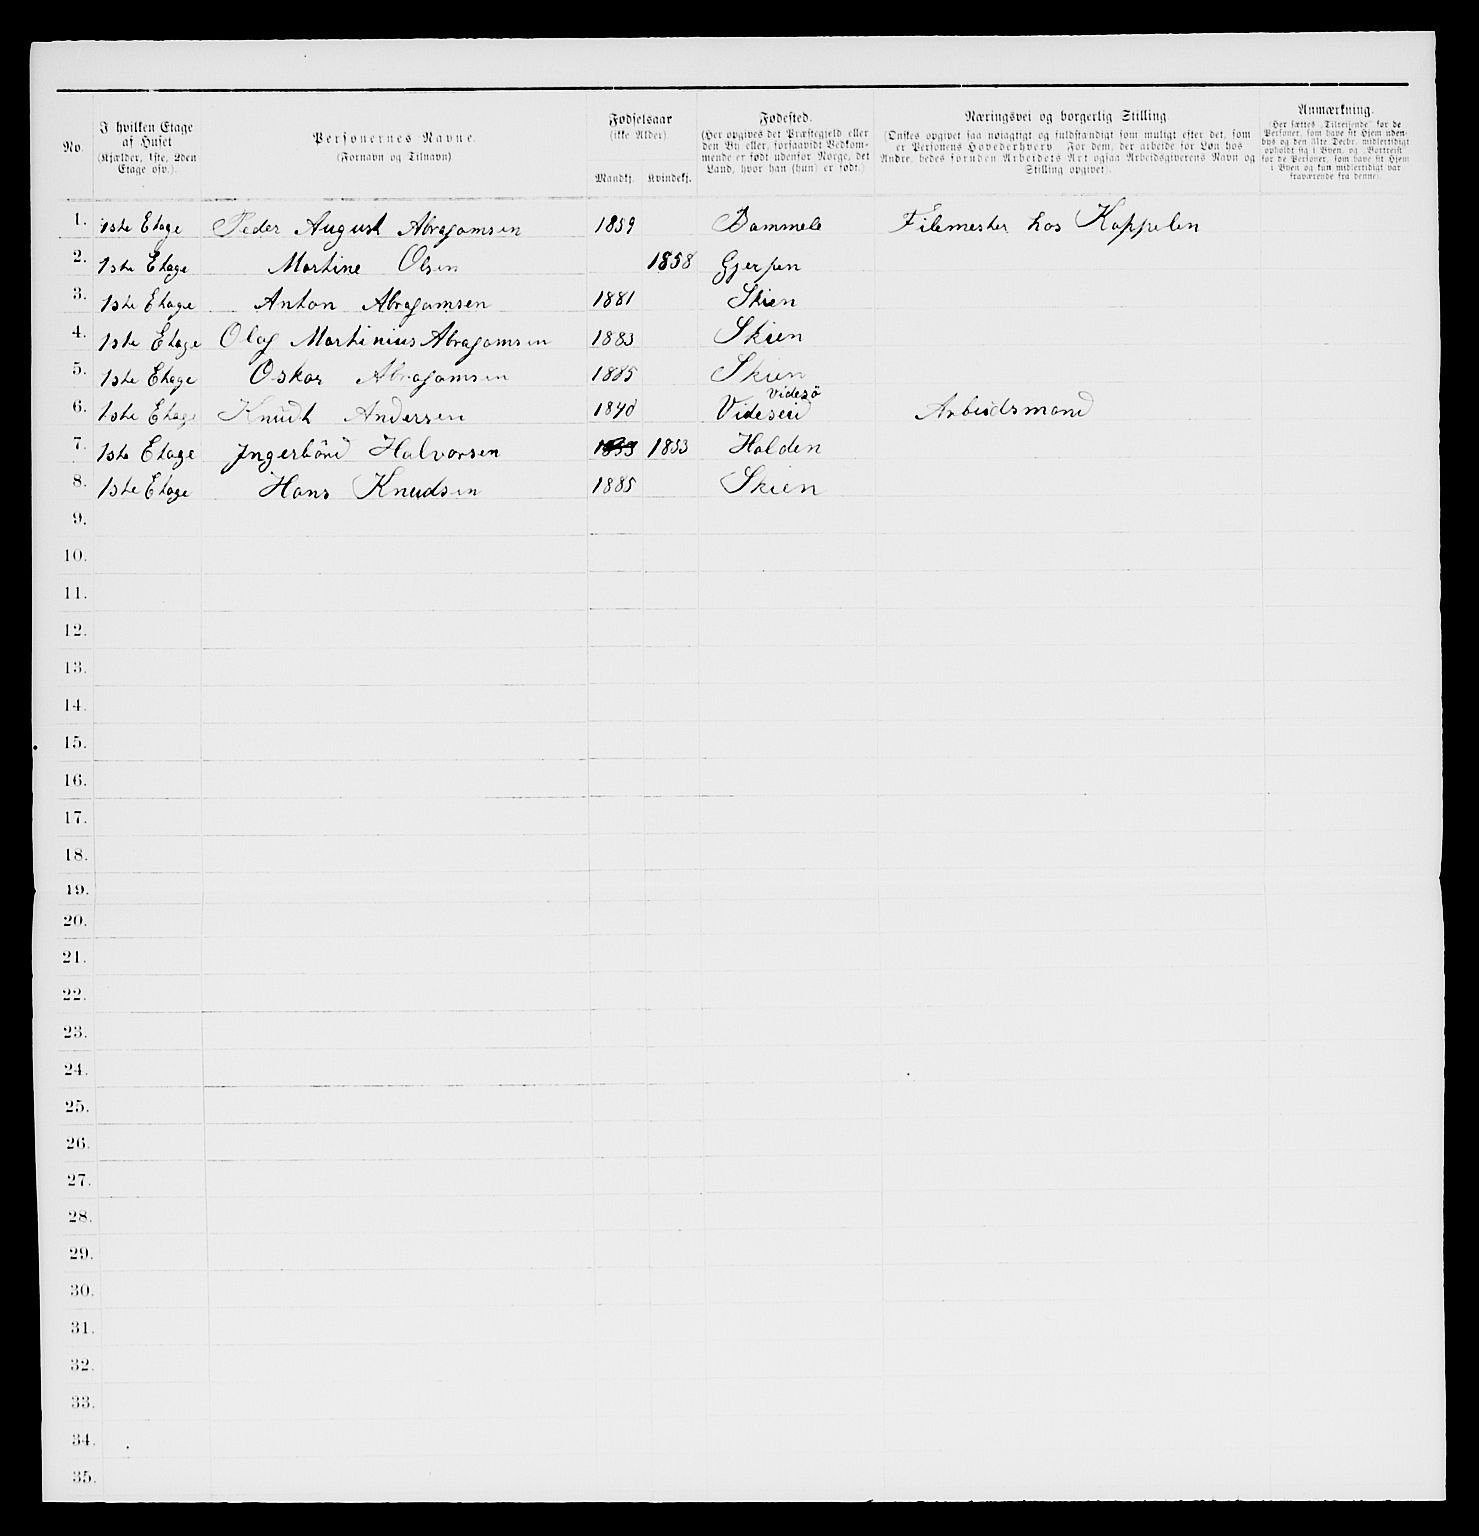 No. I hvilken Etage af Huset (Kjælder, 1ste, 2den Etage osv.). Personernes Navne. (Fornavn og Tilnavn) Fødselsaar (ikke Alder). Mandkj. Kvindekj. Fødested. (Her opgives det Præstegjeld eller den By eller, forsaavidt Vedkommende er født udenfor Norge, det Land, hvor han (hun) er født.) Næringsvei og borgerlig Stilling (Ønskes opgivet saa nøiagtigt og fuldstændigt som muligt efter det, som er Personens Hovederhverv For dem, der arbeide for Løn hos Andre, bedes foruden Arbeidets Art ogsaa Arbeidsgiverens Navn og Stilling opgivet). Anmærkning. (Her sættes „Tilreisende" for de Personer, som have sit Hjem udenbys og den 31te Decbr. midlertidigt opholdt sig i Byen, og „Bortreist" for de Personer, som have sit Hjem i Byen og kun midlertidigt var fraværende fra denne).
1. 1ste Etage Peder August Abragamsen 1859 Bammele Filemester hos Kappelen
2. 1ste Etage Martine Olsen 1858 Gjerpen
3. 1ste Etage Anton Abragamsen 1881 Skien
4. 1ste Etage Olaf Martinius Abragamsen 1883 Skien
5. 1ste Etage Oskar Abragamsen 1885 Skien
Videsö
6. 1ste Etage Knudt Andersen 1840 Videseid Arbeidsmand
7. 1ste Etage Ingerbörd Halvorsen 1853 1853 Holden
8. 1ste Etage Hans Knudsen 1885 Skien
9.
10.
11.
12.
13.
14.
15.
16.
17.
18.
19.
20.
21.
22.
23.
24.
25.
26.
27.
28.
29.
30.
31.
32.
33.
34.
35.